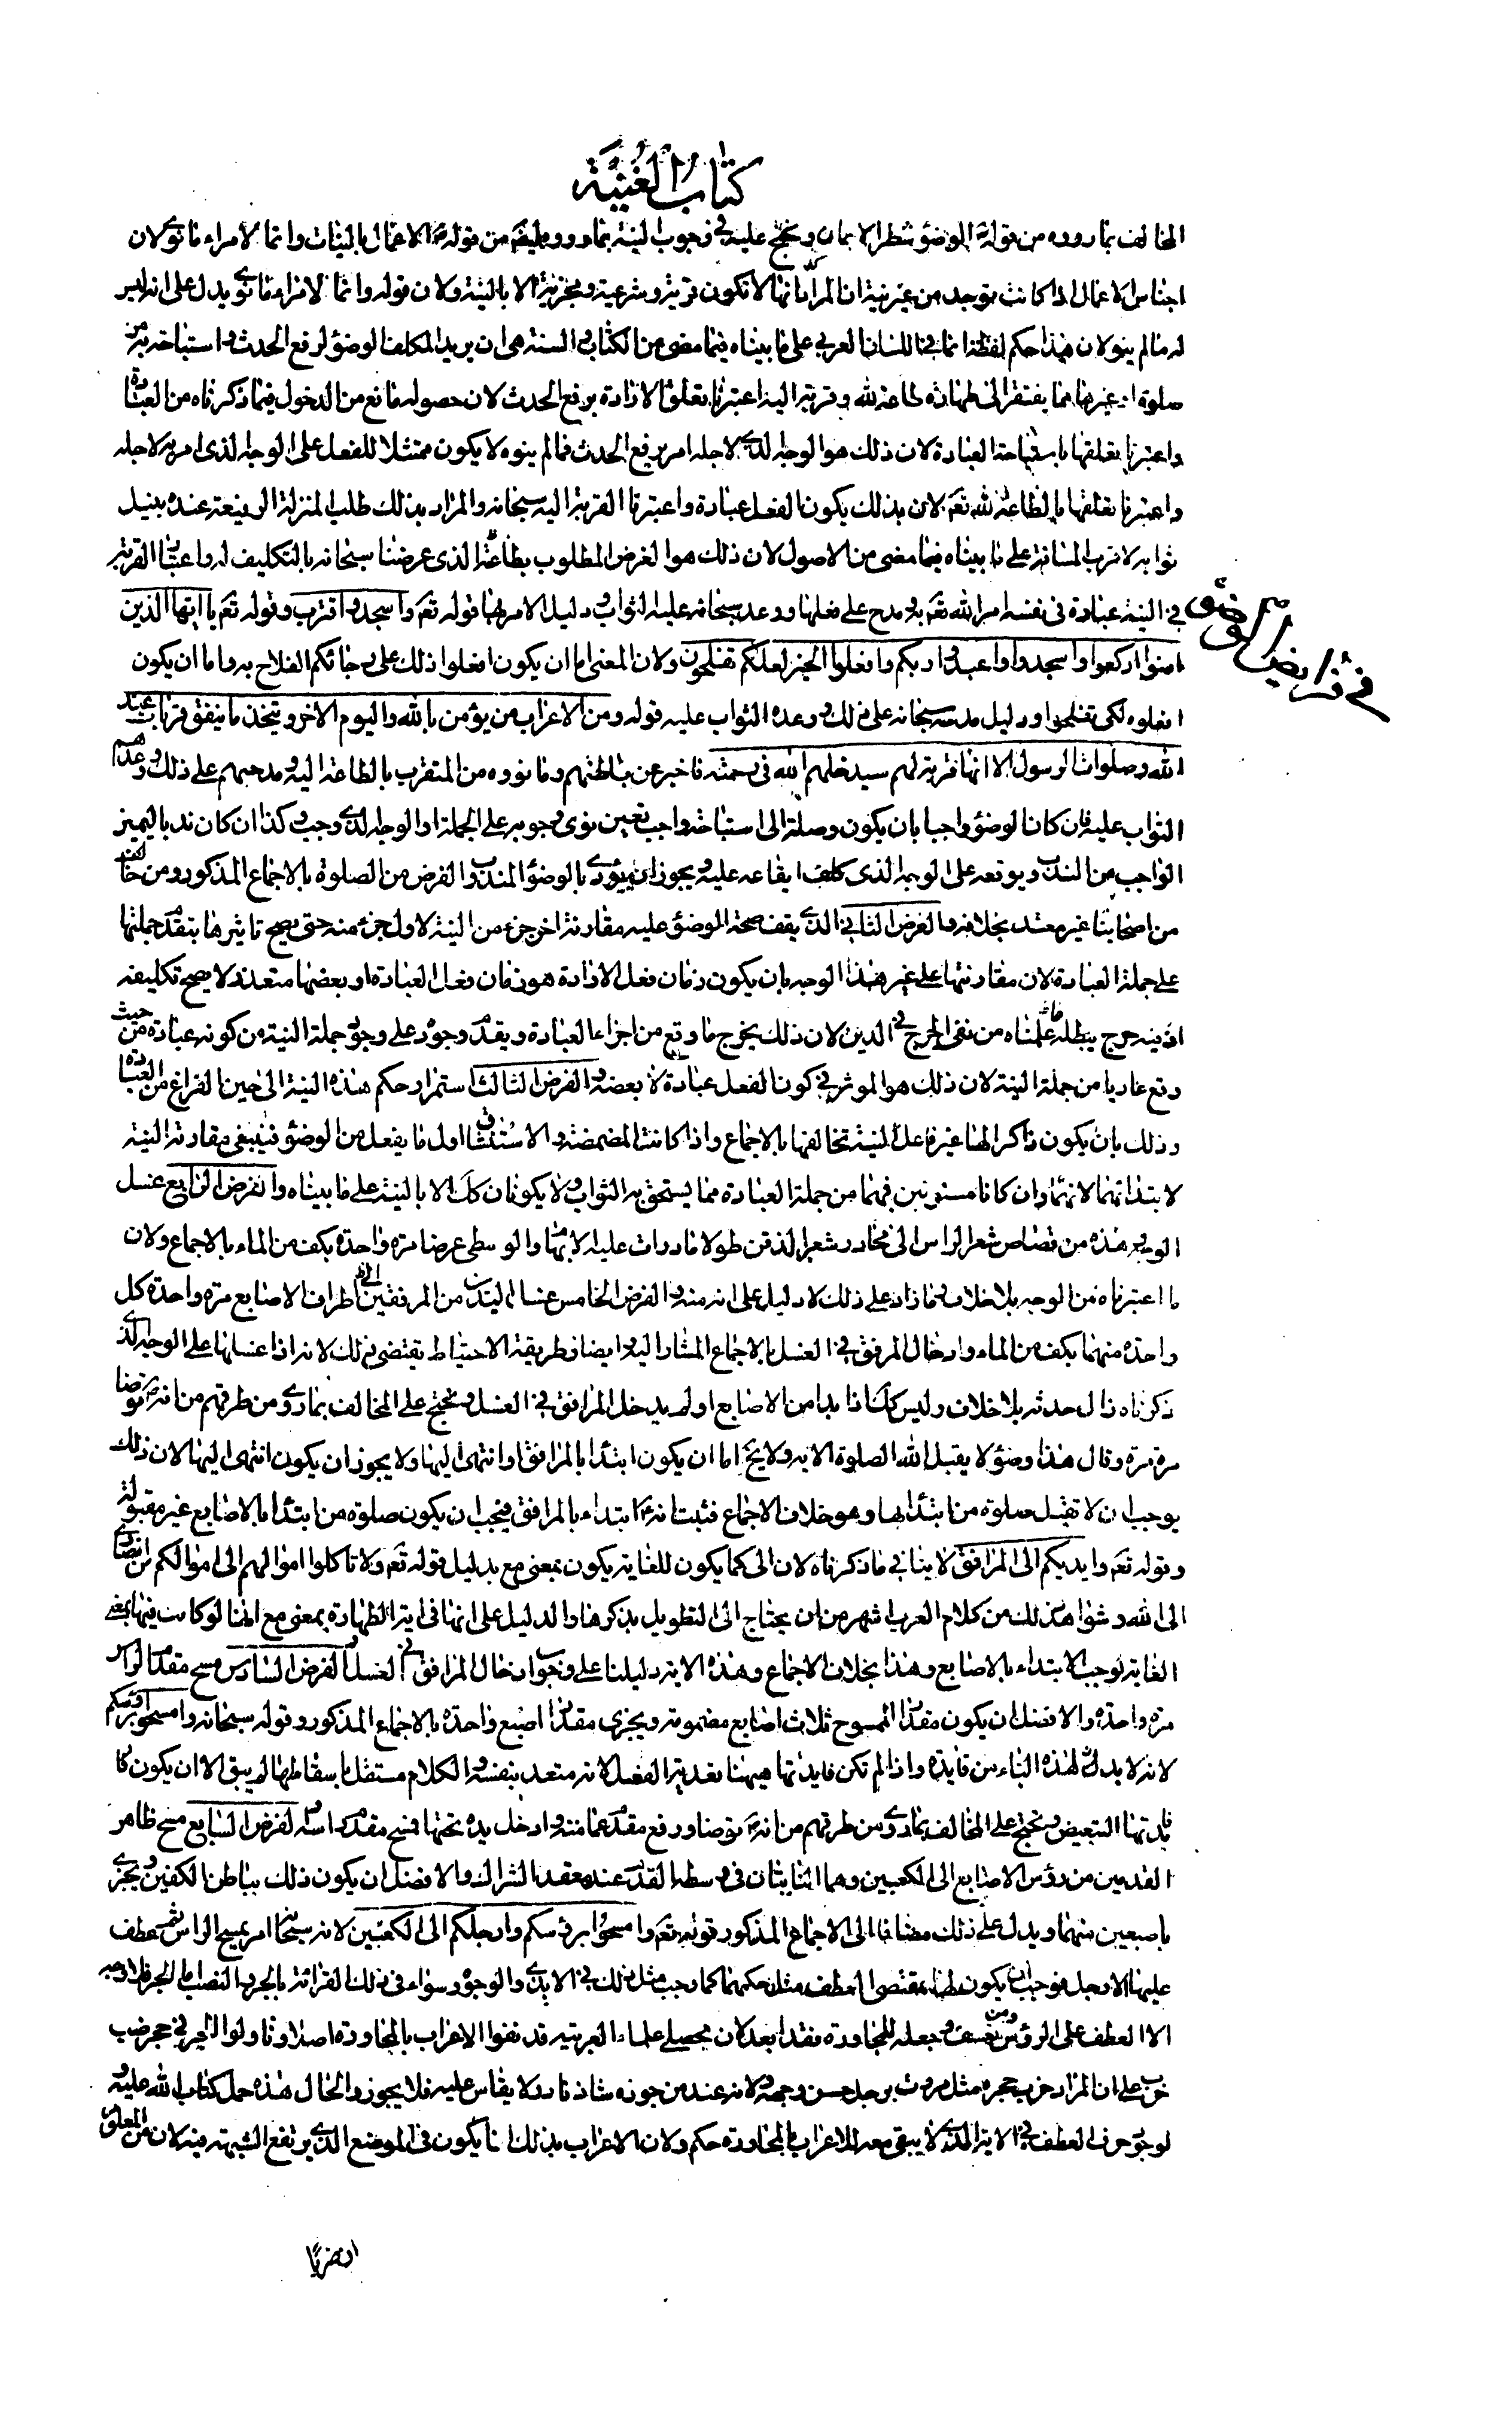 كتاب الغنية
المخالف بما رووه من قوله ؐ الوضوء شطر الايمان ونحتج عليه في وجوب النية بما رووه ايضا من قوله ؐ الاعمال بالنيات وانما لامرء ما نوى لان
اجناس الاعمال اذا كانت توجد من غير نية ان المراد انها لا تكون قربة وشرعية ومجزية الا بالنية ولان قوله وانما لامرء ما نوى يدل على انه ليس
له ما لم ينو لان هذا حكم لفظة انما في اللسان العربي على ما بيناه فيما مضى من الكتاب والسنة هي ان يريد المكلف الوضوء لرفع الحدث واستباحة ما يريد به من
صلوة او غيرها مما يفتقر الى طهارة طاعة لله وقربة اليه اعتبرنا تعلق الارادة برفع الحدث لان حصوله مانع من الدخول فيما ذكرناه من العبادة
واعتبرنا تعلقها باستباحة العبادة لان ذلك هو الوجه الذي لاجله امر برفع الحدث فما لم ينوه لا يكون ممتثلا للفعل على الوجه الذي امر به لاجله
واعتبرنا تعلقها بالطاعة لله تع لان بذلك يكون الفعل عبادة واعتبرنا القربة اليه سبحانه والمراد بذلك طلب المنزلة الرفيعة عنده بنيل
ثوابه لا قرب المسافة على ما بيناه فيما مضى من الاصول لان ذلك هو الغرض المطلوب بطاعته الذي عرضنا سبحانه بالتكليف له واعتبار القربة
في النية عبادة في نفسه امر الله تع به ومدح على فعلها ووعد سبحانه عليه الثواب ودليل الامر بها قوله تع واسجد واقترب وقوله تع يا ايها الذين
في فرايض الوضوء
امنوا اركعوا واسجدوا واعبدوا ربكم وافعلوا الخير لعلكم تفلحون ولان المعنى اما ان يكون افعلوا ذلك على رجائكم الفلاح به واما ان يكون
افعلوه لكي تفلحوا ودليل مدحه سبحانه على ذلك ووعده الثواب عليه قوله ومن الاعراب من يؤمن بالله واليوم الاخر ويتخذ ما ينفق قربات عند
الله وصلوات الرسول الا انها قربة لهم سيدخلهم الله في رحمته فاخبر عن باطنهم وما نووه من التقرب بالطاعة اليه ومدحهم على ذلك ووعدهم
الثواب عليه فان كان الوضوء واجبا بان يكون وصلة الى استباحة واجب تعين نوى وجوبه على الجملة او الوجه الذي وجب وكذا ان كان ندبا ليميز
الواجب من الندب ويوقعه على الوجه الذي كلف ايقاعه عليه ويجوز ان يؤدى بالوضوء المندوب الفرض من الصلوة بالاجماع المذكور ومن خالف
من اصحابنا غير معتد بخلافه والفرض الثاني الذي يقف صحة الوضوء عليه مقارنة اخر جزء من النية لاول جزء منه حتى يصح تاثيرها بتقدم جملتها
على جملة العبادة لان مقارنتها على غير هذا الوجه بان يكون زمان فعل الارادة هو زمان فعل العبادة او بعضها متعذر لا يصح تكليفه
او فيه حرج يبطله ما علمناه من نفي الحرج في الدين لان ذلك يخرج ما وقع من اجزاء العبادة ويقدم وجوده على وجود جملة النية من كونه عبادة من حيث
وقع عاريا من جملة النية لان ذلك هو الموثر في كون الفعل عبادة لا بعضه والفرض الثالث استمرار حكم هذه النية الى حين الفراغ من العبادة
وذلك بان يكون ذاكرا لها غير فاعل لنية تخالفها بالاجماع واذا كانت المضمضة والاستنشاق اول ما يفعل من الوضوء فينبغي مقارنة النية
لابتدائهما لانهما وان كانا مسنونين فهما من جملة العبادة مما يستحق به الثواب ولا يكونان كك الا بالنية على ما بيناه والفرض الرابع غسل
الوجه وحده من قصاص شعر الراس الى محادر شعر الذقن طولا وما دارت عليه الابهام والوسطى عرضا مرة واحدة بكف من الماء بالاجماع ولان
ما اعتبرناه من الوجه بلا خلاف وما زاد على ذلك لا دليل على انه منه والفرض الخامس غسل اليدين من المرفقين الى اطراف الاصابع مرة واحدة كل
واحدة منهما بكف من الماء وادخال المرفق في الغسل بالاجماع المشار اليه وايضا فطريقة الاحتياط يقتضي ذلك لانه اذا غسلها على الوجه الذي
ذكرناه زال حدثه بلا خلاف وليس كك اذا بدا من الاصابع او لم يدخل المرافق في الغسل ونحتج على المخالف بما روى من طرقهم من انه ؐ توضا
مرة مرة وقال هذا وضوء لا يقبل الله الصلوة الا به ولا يخ اما ان يكون ابتدا بالمرافق او انتهى اليها ولا يجوز ان يكون انتهى اليها لان ذلك
يوجب ان لا تقبل صلوة من ابتدا بها وهو خلاف الاجماع فثبت انه ؐ ابتداء بالمرافق فيجب ان يكون صلوة من ابتدا بالاصابع غير مقبولة
وقوله تع وايديكم الى المرافق لا ينافي ما ذكرناه لان الى كما يكون للغاية يكون بمعنى مع بدليل قوله تع ولا تاكلوا اموالهم الى اموالكم من انصاري
الى الله وشواهد ذلك من كلام العرب اشهر من ان يحتاج الى التطويل بذكرها والدليل على انها في اية الطهارة بمعنى مع انها لو كانت فيها بمعنى
الغاية لوجب الابتداء بالاصابع وهذا بخلاف الاجماع وهذه الاية دليلنا على وجوب ادخال المرافق في الغسل والفرض السادس مسح مقدم الراس
مرة واحدة والافضل ان يكون مقدار الممسوح ثلاث اصابع مضمومة ويجزى مقدار اصبع واحدة بالاجماع المذكور وقوله سبحانه وامسحوا برؤسكم
لانه لا بد لهذه الباء من فايدة واذا لم تكن فايدتها هيهنا تعدية الفعل لانه متعد بنفسه والكلام مستقل باسقاطها لم يبق الا ان يكون
فايدتها التبعيض ونحتج على المخالف بما روى من طرقهم من انه ؐ توضا ورفع مقدم عمامته وادخل يده تحتها فمسح مقدم راسه والفرض السابع مسح ظاهر
القدمين من رؤس الاصابع الى الكعبين وهما الناتيان في وسط القدم عند معقد الشراك والافضل ان يكون ذلك بباطن الكفين ويجزى
باصبعين منهما ويدل على ذلك مضافا الى الاجماع المذكور قوله تع وامسحوا برؤسكم وارجلكم الى الكعبين لانه سبحانه امر بمسح الراس ثم عطف
عليها الارجل فوجب ان يكون لها بمقتضى العطف مثل حكمها كما وجب مثل ذلك في الايدي والوجوه وسواء في ذلك القرائة بالجر والنصب اما الجر فلا وجه له
الا العطف على الرؤس ومن تعسف وجعله للمجاورة فقد ابعد لان محصلي علماء العربية قد نفوا الاعراب بالمجاورة اصلا وتاولوا الجر في جحر ضب
خرب على ان المراد خرب جحره مثل مررت برجل حسن وجهه ولانه عند من جوزه شاذ نادر لا يقاس عليه فلا يجوز والحال هذه حمل كتاب الله عليه و
لوجود حرف العطف في الاية الذي لا يبقى معه للاعراب بالمجاورة حكم ولان الاعراب بذلك انما يكون في الموضع الذي يرتفع الشبهة فيه لان من المعلوم